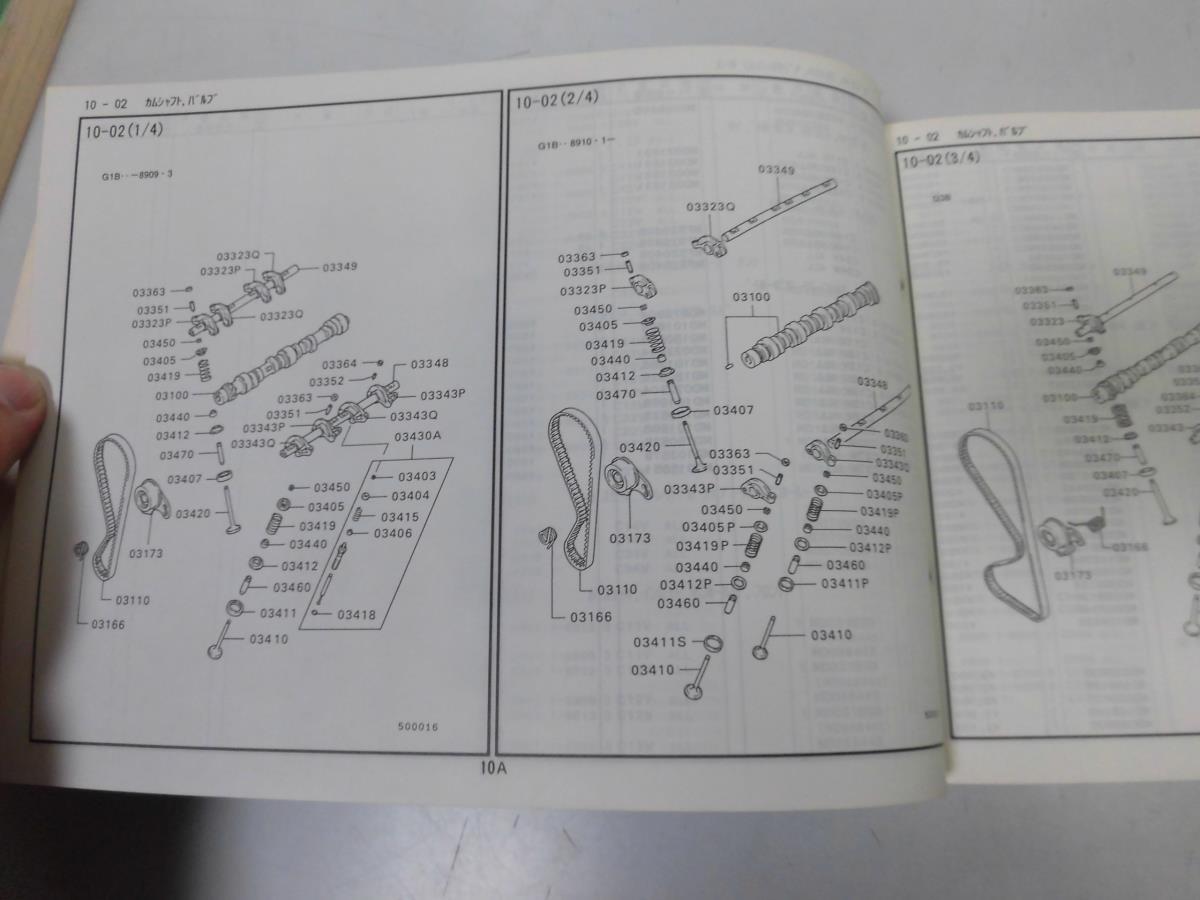 10 - 02 カムシャフト,バルブ
10-02(1/4)
G1B‥-8909・3
03323Q
03323P
03349
03363
03351
03323P
03323Q
03450
03405
03419
03100
03364
03348
03352
03363
03343P
03351
03343Q
03343P
03343Q
03430A
03440
03412
03470
03407
03420
03173
03110
03166
03450
03405
03419
03440
03412
03460
03411
03410
03403
03404
03415
03406
03418
500016
10-02(2/4)
G1B‥8910・1-
03349
03323Q
03363
03351
03323P
03450
03405
03419
03440
03412
03470
03100
03407
03420
03348
03351
03343Q
03450
03405P
03419P
03440
03412P
03460
03411P
03410
03363
03351
03343P
03450
03405P
03419P
03440
03412P
03460
03411S
03410
03173
03110
03166
10A
10 - 02 カムシャフト,バルブ
10-02(3/4)
03349
03363
03351
03323
03450
03405
03440
03100
03110
03419
03412
03470
03407
03420
03166
03173
03352
03343